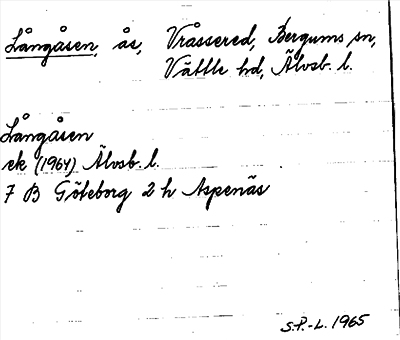 Långåsen, ås, Vråssered, Bergums sn,
Vättle hd, Älvsb. l.
Långåsen
ek (1964) Älvsb. l.
7 B Göteborg 2 h Aspenäs
S.P.-L. 1965